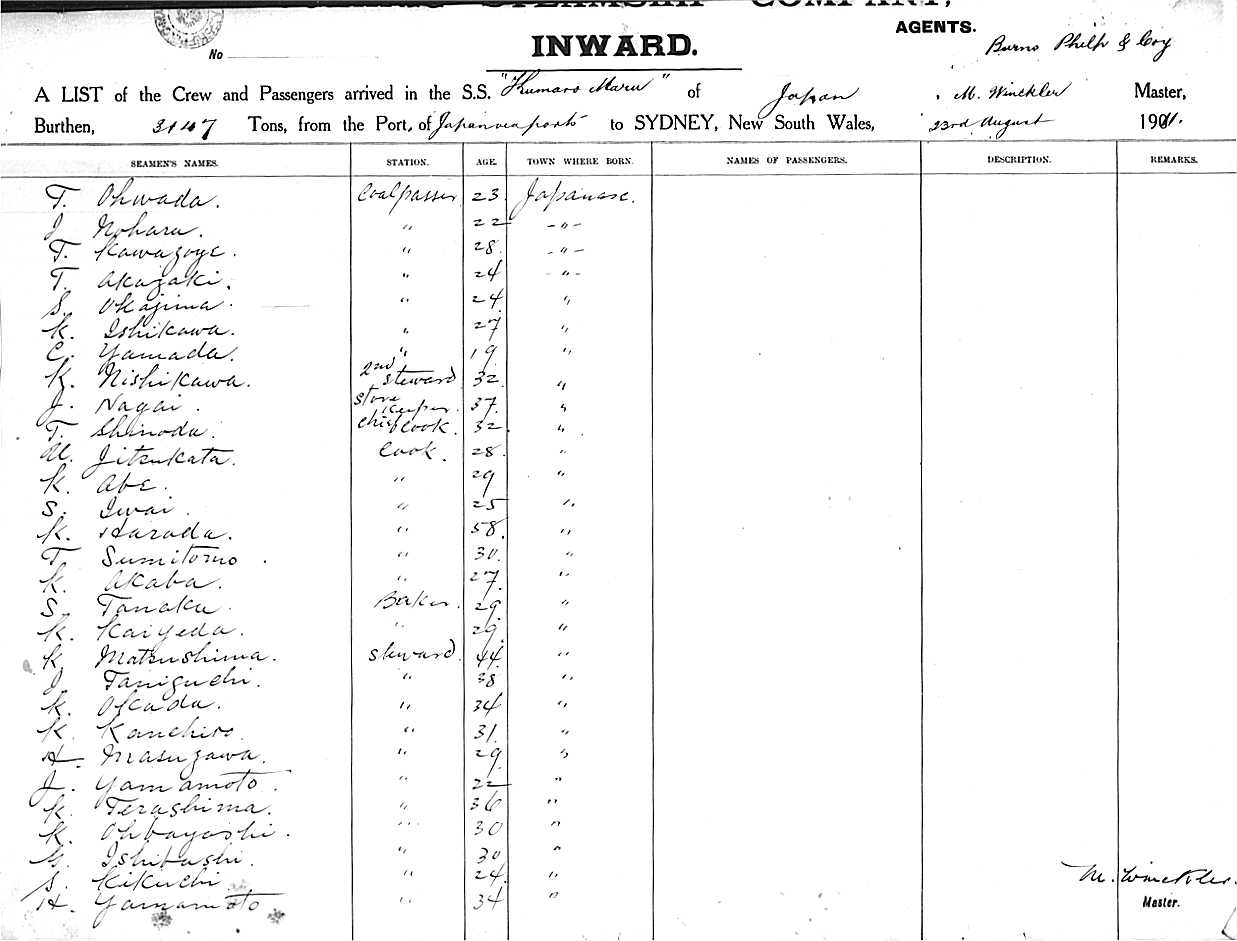 STEAMSHIP COMPANY,
AGENTS.
No
INWARD.
Burns Philp & Coy
A LIST of the Crew and Passengers arrived in the S.S. "Kumano Maru" of Japan, M. Winckler Master,
Burthen, 3147 Tons, from the Port, of Japan via ports to SYDNEY, New South Wales, 23rd August 1901.
SEAMEN'S NAMES. STATION. AGE. TOWN WHERE BORN. NAMES OF PASSENGERS. DESCRIPTION. REMARKS.
T. Ohwada. Coalpasser 23. Japanese.
J Nohara. " 22 -"-
T. Kawazoye. " 28. -"-
T. Akazaki. " 24 -"-
S. Okajima. " 24. "
K. Ishikawa. " 27 "
C. Yamada. " 19 "
K. Nishikawa. 2nd steward 32. "
J. Nagai. store keeper. 37. "
T. Shinoda. chief cook. 32. "
U. Jitsukata. Cook. 28. "
K. Abe. " 29 "
S. Iwai. " 25 "
K. Harada. " 58. "
T Sumitomo. " 30. "
K. Akaba. " 27. "
S. Tanaka. Baker. 29 "
K. Kaiyeda. " 29. "
K. Matsushima. steward. 44. "
J Taniguchi. " 38 "
K. Okada. " 34 "
K. Kanehiro. " 31. "
H. Masuzawa. " 29 "
J. Yamamoto. " 22 "
K. Terashima. " 36 "
K. Ohbayashi. " 30 "
G. Ishibashi. " 30 "
S. Kikuchi. " 24. "
H. Yamamoto " 34 "
M. Winckler.
Master.